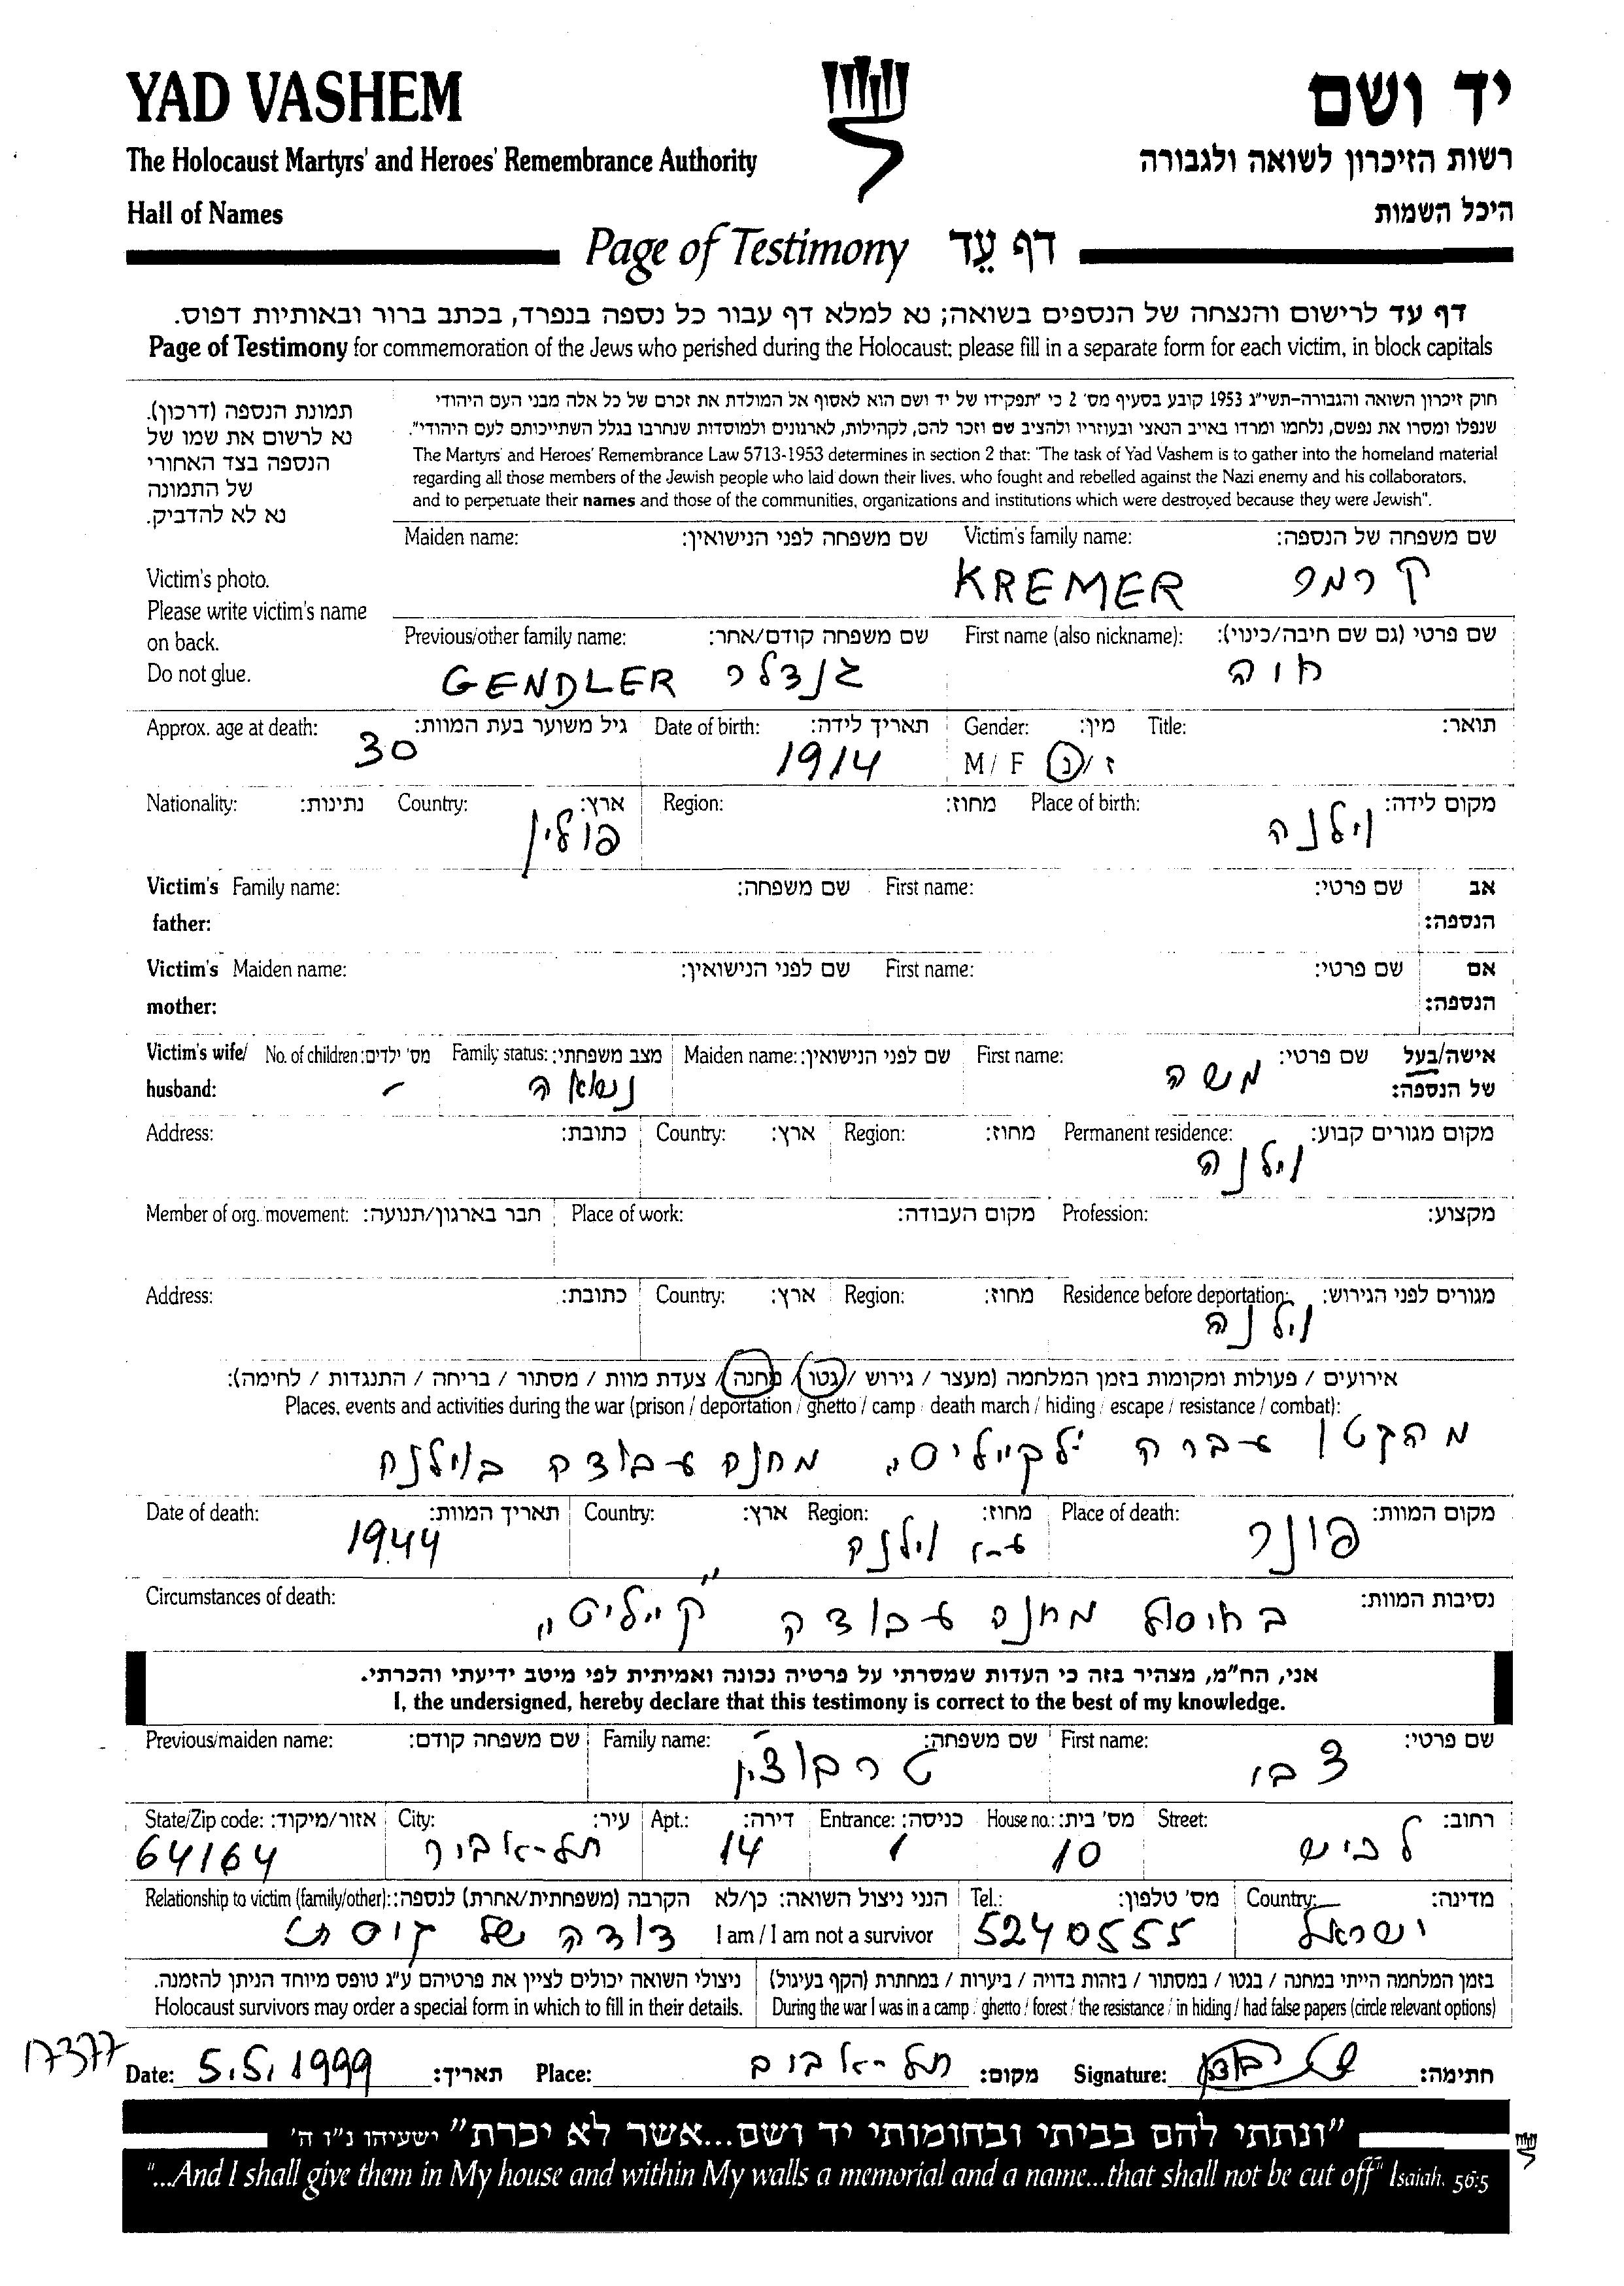 YAD VASHEM
יד ושם
The Holocaust Martyrs' and Heroes' Remembrance Authority
רשות הזיכרון לשואה ולגבורה
Hall of Names
היכל השמות
Page of Testimony דף עֵד
דף עד לרישום והנצחה של הנספים בשואה; נא למלא דף עבור כל נספה בנפרד, בכתב ברור ובאותיות דפוס.
Page of Testimony for commemoration of the Jews who perished during the Holocaust; please fill in a separate form for each victim, in block capitals
תמונת הנספה (דרכון).
נא לרשום את שמו של
הנספה בצד האחורי
של התמונה
נא לא להדביק.
Victim's photo.
Please write victim's name
on back.
Do not glue.
חוק זיכרון השואה והגבורה-תשי"ג 1953 קובע בסעיף מס' 2 כי "תפקידו של יד ושם הוא לאסוף אל המולדת את זכרם של כל אלה מבני העם היהודי
שנפלו ומסרו את נפשם, נלחמו ומרדו באויב הנאצי ובעוזריו ולהציב שם וזכר להם, לקהילות, לארגונים ולמוסדות שנחרבו בגלל השתייכותם לעם היהודי".
The Martyrs' and Heroes' Remembrance Law 5713-1953 determines in section 2 that: "The task of Yad Vashem is to gather into the homeland material
regarding all those members of the Jewish people who laid down their lives, who fought and rebelled against the Nazi enemy and his collaborators,
and to perpetuate their names and those of the communities, organizations and institutions which were destroyed because they were Jewish".
Maiden name: שם משפחה לפני הנישואין: Victim's family name: שם משפחה של הנספה:
KREMER קרמר
Previous/other family name: שם משפחה קודם/אחר: First name (also nickname): שם פרטי (גם שם חיבה/כינוי):
GENDLER גנדלר חוה
Approx. age at death: גיל משוער בעת המוות: Date of birth: תאריך לידה: Gender: מין: Title: תואר:
30 1914 M/ F ז /נ
Nationality: נתינות: Country: ארץ: Region: מחוז: Place of birth: מקום לידה:
פולין וילנה
Victim's Family name: שם משפחה: First name: שם פרטי: אב
father: הנספה:
Victim's Maiden name: שם לפני הנישואין: First name: שם פרטי: אם
mother: הנספה:
Victim's wife/ No. of children: מס' ילדים: Family status: מצב משפחתי: Maiden name: שם לפני הנישואין: First name: שם פרטי: אישה/בעל
husband: - נשואה משה של הנספה:
Address: כתובת: Country: ארץ: Region: מחוז: Permanent residence: מקום מגורים קבוע:
וילנה
Member of org. movement: חבר בארגון/תנועה: Place of work: מקום העבודה: Profession: מקצוע:
Address: כתובת: Country: ארץ: Region: מחוז: Residence before deportation: מגורים לפני הגירוש:
וילנה
אירועים / פעולות ומקומות בזמן המלחמה (מעצר / גירוש / גטו / מחנה / צעדת מוות / מסתור / בריחה / התנגדות / לחימה):
Places, events and activities during the war (prison / deportation / ghetto / camp / death march / hiding / escape / resistance / combat):
עברה "לקייליס" מחנה עבודה בוילנה
Date of death: תאריך המוות: Country: ארץ: Region: מחוז: Place of death: מקום המוות:
1944 ע"י וילנה פונר
Circumstances of death: נסיבות המוות:
בחיסול מחנה עבודה "קייליס"
אני, הח"מ, מצהיר בזה כי העדות שמסרתי על פרטיה נכונה ואמיתית לפי מיטב ידיעתי והכרתי.
I, the undersigned, hereby declare that this testimony is correct to the best of my knowledge.
Previous/maiden name: שם משפחה קודם: Family name: שם משפחה: First name: שם פרטי:
צבי
State/Zip code: אזור/מיקוד: City: עיר: Apt.: דירה: Entrance: כניסה: House no.: מס' בית: Street: רחוב:
64164 תל-אביב 14 1 10 לכיש
Relationship to victim (family/other): הקרבה (משפחתית/אחרת) לנספה: הנני ניצול השואה: כן/לא Tel.: מס' טלפון: Country: מדינה:
דודה של I am / I am not a survivor 5240555 ישראל
ניצולי השואה יכולים לציין את פרטיהם ע"ג טופס מיוחד הניתן להזמנה.
Holocaust survivors may order a special form in which to fill in their details.
בזמן המלחמה הייתי במחנה / בגטו / במסתור / בזהות בדויה / ביערות / במחתרת (הקף בעיגול)
During the war I was in a camp / ghetto / forest / the resistance / in hiding / had false papers (circle relevant options)
17377
Date: 5.5.1999 תאריך: Place: תל-אביב מקום: Signature: חתימה:
"ונתתי להם בביתי ובחומותי יד ושם...אשר לא יכרת" ישעיהו נ"ו ה'
"...And I shall give them in My house and within My walls a memorial and a name...that shall not be cut off" Isaiah, 56:5